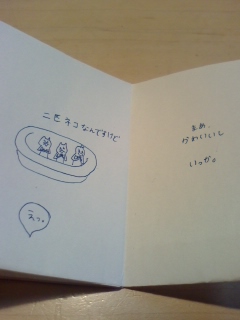 ニセネコなんですけど
えっ。
まぁ、
かわいいし
いっか。